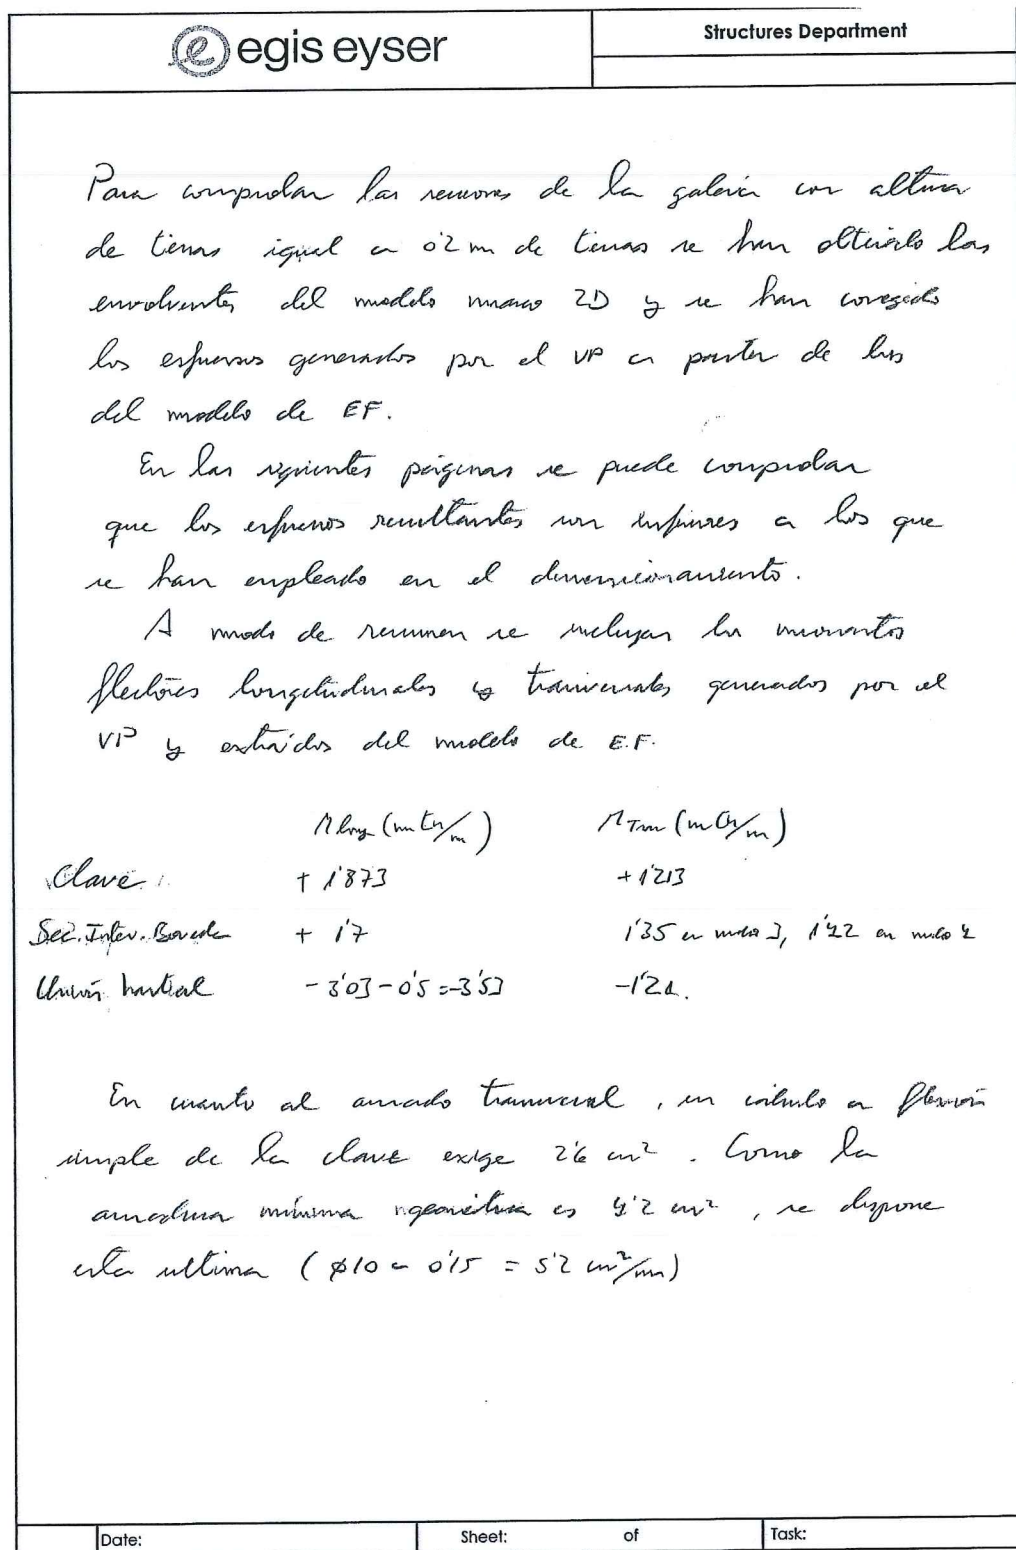 egis eyser
Structures Department
Para comprobar las secciones de la galería con altura
de tierras igual a 0'2 m de tierras se han obtenido las
envolventes del modelo marco 2D y se han corregido
los esfuerzos generados por el VP a partir de los
del modelo de EF.
En las siguientes páginas se puede comprobar
que los esfuerzos resultantes son inferiores a los que
se han empleado en el dimensionamiento.
A modo de resumen se incluyen los momentos
flectores longitudinales y transversales generados por el
VP y extraídos del modelo de E.F.
M long (m tn/m) M Tran (m tn/m)
Clave + 1'873 + 1'213
Sec. Inter. Boveda + 1'7 1'35 en nudo 3, 1'22 en nudo 4
Unión hastial - 3'03 - 0'5 = -3'53 -1'21.
En cuanto al armado transversal, un cálculo a flexión
simple de la clave exige 2'6 cm². Como la
armadura mínima geométrica es 4'2 cm², se dispone
esta ultima (ø10 a 0'15 = 5'2 cm²/m)
Date: Sheet: of Task: